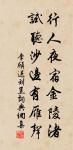 行人夜宿金陵渚
試聽沙邊有雁聲
李頎送劉昱詞典網集